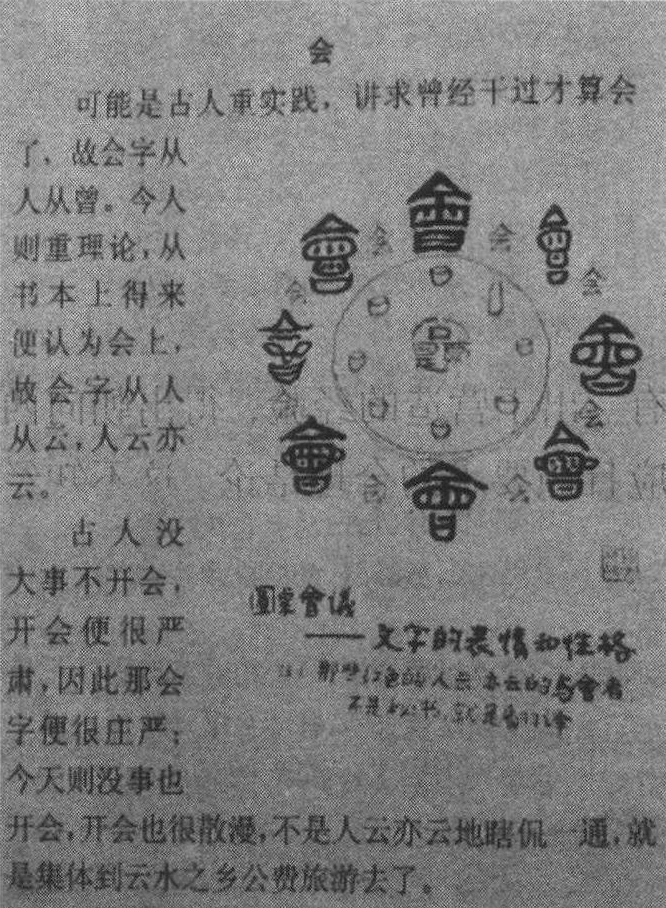 会
可能是古人重实践，讲求曾经干过才算会
了，故会字从
人从曾。今人
则重理论，从
书本上得来
便认为会上，
故会字从人
从云，人云亦
云。
古人没
大事不开会，
开会便很严
肃，因此那会
字便很庄严；
今天则没事也
开会，开会也很散漫，不是人云亦云地瞎侃一通，就
是集体到云水之乡公费旅游去了。
會
会
會
会
會
会
會
会
會
会
會
会
會
会
會
会
圓桌會议
——文字的表情和性格
那些红色的人云亦云的与會者
不是秘书，就是